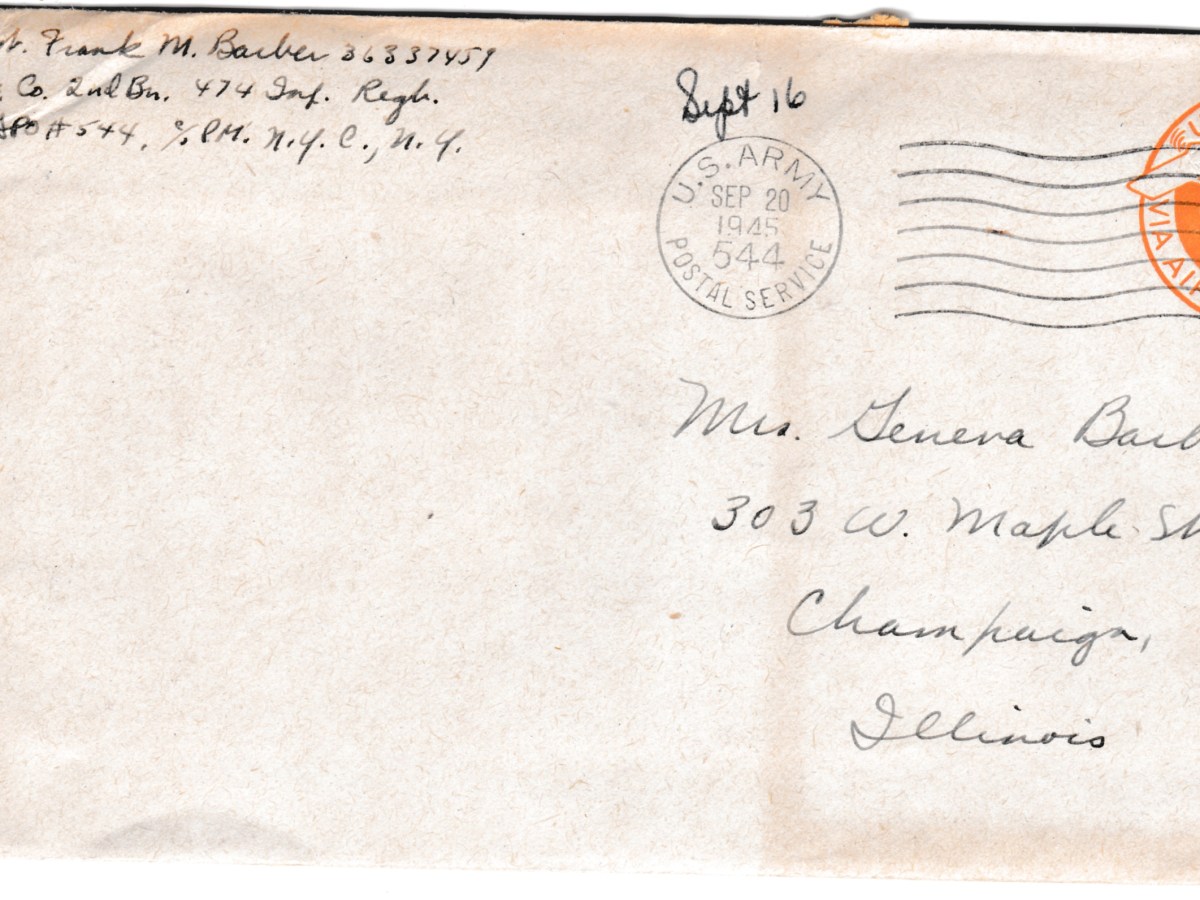 Frank M. Barber 36337459
Co. 2nd Bn. 474 Inf. Regt.
APO # 544, c/o PM. N.Y.C., N.Y.
Sept 16
U.S. ARMY
SEP 20
1945
544
POSTAL SERVICE
VIA AIR
Mrs. Geneva Barb
303 W. Maple St
Champaign,
Illinois